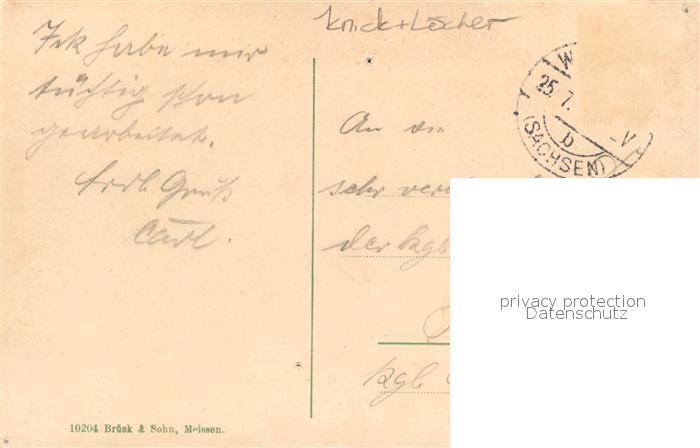 knick + Löcher
Ich habe mir
tüchtig schon
gearbeitet.
Grdl Gruß
Carl.
W
25.7.
-V
b
(SACHSEN)
An die
sehr ver
der kgl
kgl
10204 Brück & Sohn, Meissen.
privacy protection
Datenschutz